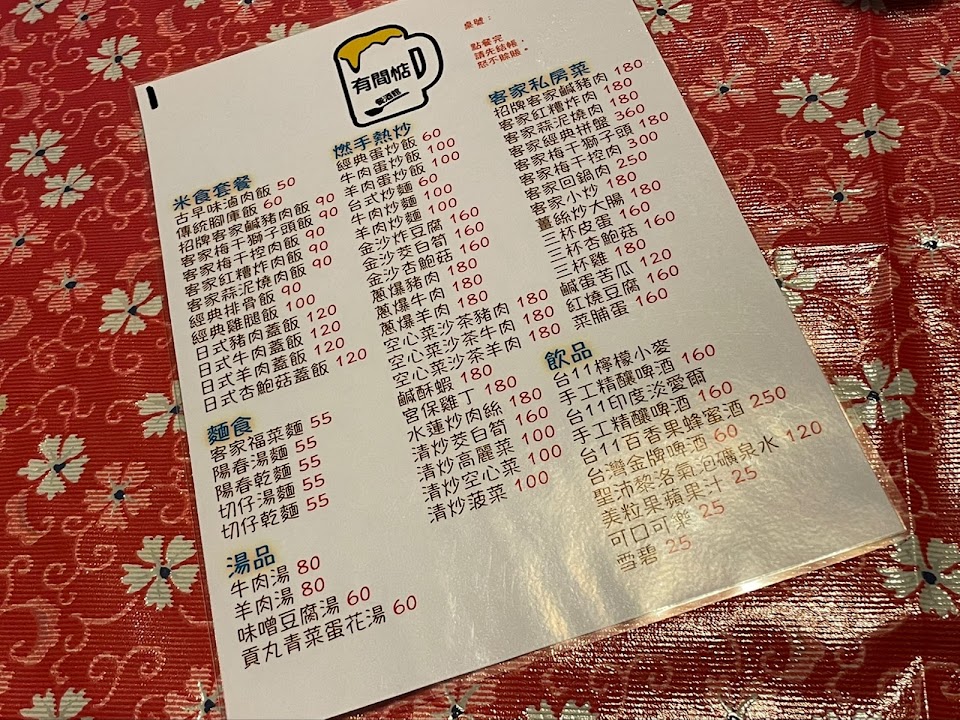 有間惦
餐酒館
桌號：
點餐完
請先結帳，
恕不賒賬。
米食套餐
古早味滷肉飯 50
傳統腳庫飯 60
招牌客家鹹豬肉飯 90
客家梅干獅子頭飯 90
客家梅干控肉飯 90
客家紅糟炸肉飯 90
客家蒜泥燒肉飯 90
經典排骨飯 90
經典雞腿飯 100
日式豬肉蓋飯 120
日式牛肉蓋飯 120
日式羊肉蓋飯 120
日式杏鮑菇蓋飯 120
麵食
客家福菜麵 55
陽春湯麵 55
陽春乾麵 55
切仔湯麵 55
切仔乾麵 55
湯品
牛肉湯 80
羊肉湯 80
味噌豆腐湯 60
貢丸青菜蛋花湯 60
燃手熱炒
經典蛋炒飯 60
牛肉蛋炒飯 100
羊肉蛋炒飯 100
台式炒麵 60
牛肉炒麵 100
羊肉炒麵 100
金沙炸豆腐 160
金沙茭白筍 160
金沙杏鮑菇 160
蔥爆豬肉 180
蔥爆牛肉 180
蔥爆羊肉 180
空心菜沙茶豬肉 180
空心菜沙茶牛肉 180
空心菜沙茶羊肉 180
鹹酥蝦 180
宮保雞丁 180
水蓮炒肉絲 180
清炒茭白筍 160
清炒高麗菜 100
清炒空心菜 100
清炒菠菜 100
客家私房菜
招牌客家鹹豬肉 180
客家紅糟炸肉 180
客家蒜泥燒肉 180
客家經典拼盤 360
客家梅干獅子頭 180
客家梅干控肉 300
客家回鍋肉 250
客家小炒 180
薑絲炒大腸 180
三杯皮蛋 160
三杯杏鮑菇 160
三杯雞 180
鹹蛋苦瓜 160
紅燒豆腐 120
菜脯蛋 160
飲品
台11檸檬小麥
手工精釀啤酒 160
台11印度淡愛爾
手工精釀啤酒 160
台11百香果蜂蜜酒 250
台灣金牌啤酒 60
聖沛黎洛氣泡礦泉水 120
美粒果蘋果汁 25
可口可樂 25
雪碧 25